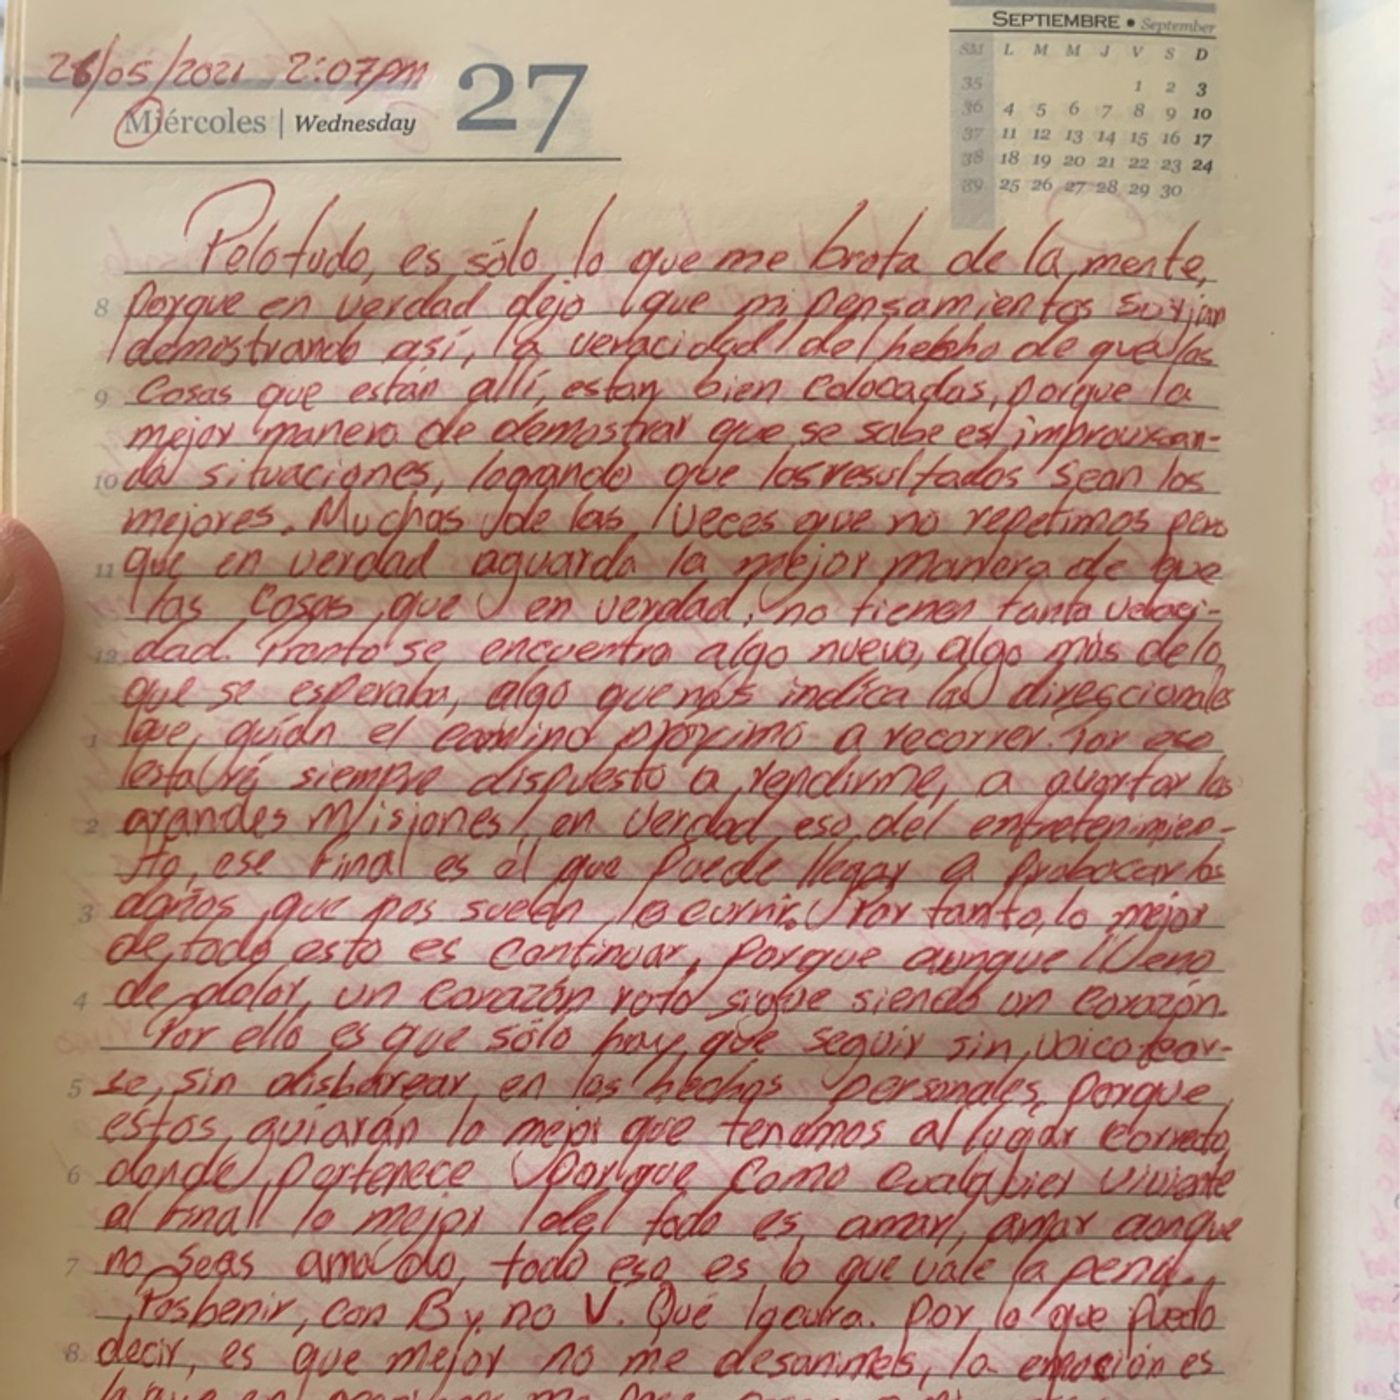 SEPTIEMBRE • September
SM L M M J V S D
35 1 2 3
36 4 5 6 7 8 9 10
37 11 12 13 14 15 16 17
38 18 19 20 21 22 23 24
39 25 26 27 28 29 30
26/05/2021 2:07PM
Miércoles | Wednesday 27
Pelotudo, es sólo lo que me brota de la mente,
8 porque en verdad dejo que mi pensamientos surjan
demostrando así, la veracidad del hecho de que las
9 cosas que están allí, estan bien colocadas, porque la
mejor manera de demostrar que se sabe es improvisan-
10 do situaciones, logrando que los resultados sean los
mejores. Muchas de las veces que no repetimos pero
11 que en verdad aguarda la mejor manera de que
las cosas que en verdad, no tienen tanta veloci-
12 dad. Pronto se encuentra algo nuevo, algo más de lo
que se esperaba, algo que nos indica las direccionales
1 que guían el camino próximo a recorrer. Por eso
estaré siempre dispuesto a rendirme, a las
2 grandes misiones, en verdad eso del entretenimien-
to, ese final es el que puede llegar a probocar los
3 daños que nos suelen ocurrir. Por tanto, lo mejor
de todo esto es continuar, porque aunque lleno
4 de dolor, un corazón roto sigue siendo un corazón.
Por ello es que sólo hay que seguir sin
5 se, sin en los hechos personales, porque
estos guiarán lo mejor que tenemos al lugar correcto,
6 donde pertenece porque como cualquier viviente
al final lo mejor del todo es amar, amar aunque
7 no seas amado, todo eso es lo que vale la pena.
Posbenir, con B y no V. Qué locura. Por lo que puedo
8 decir, es que mejor no me desanimes, la emoción es